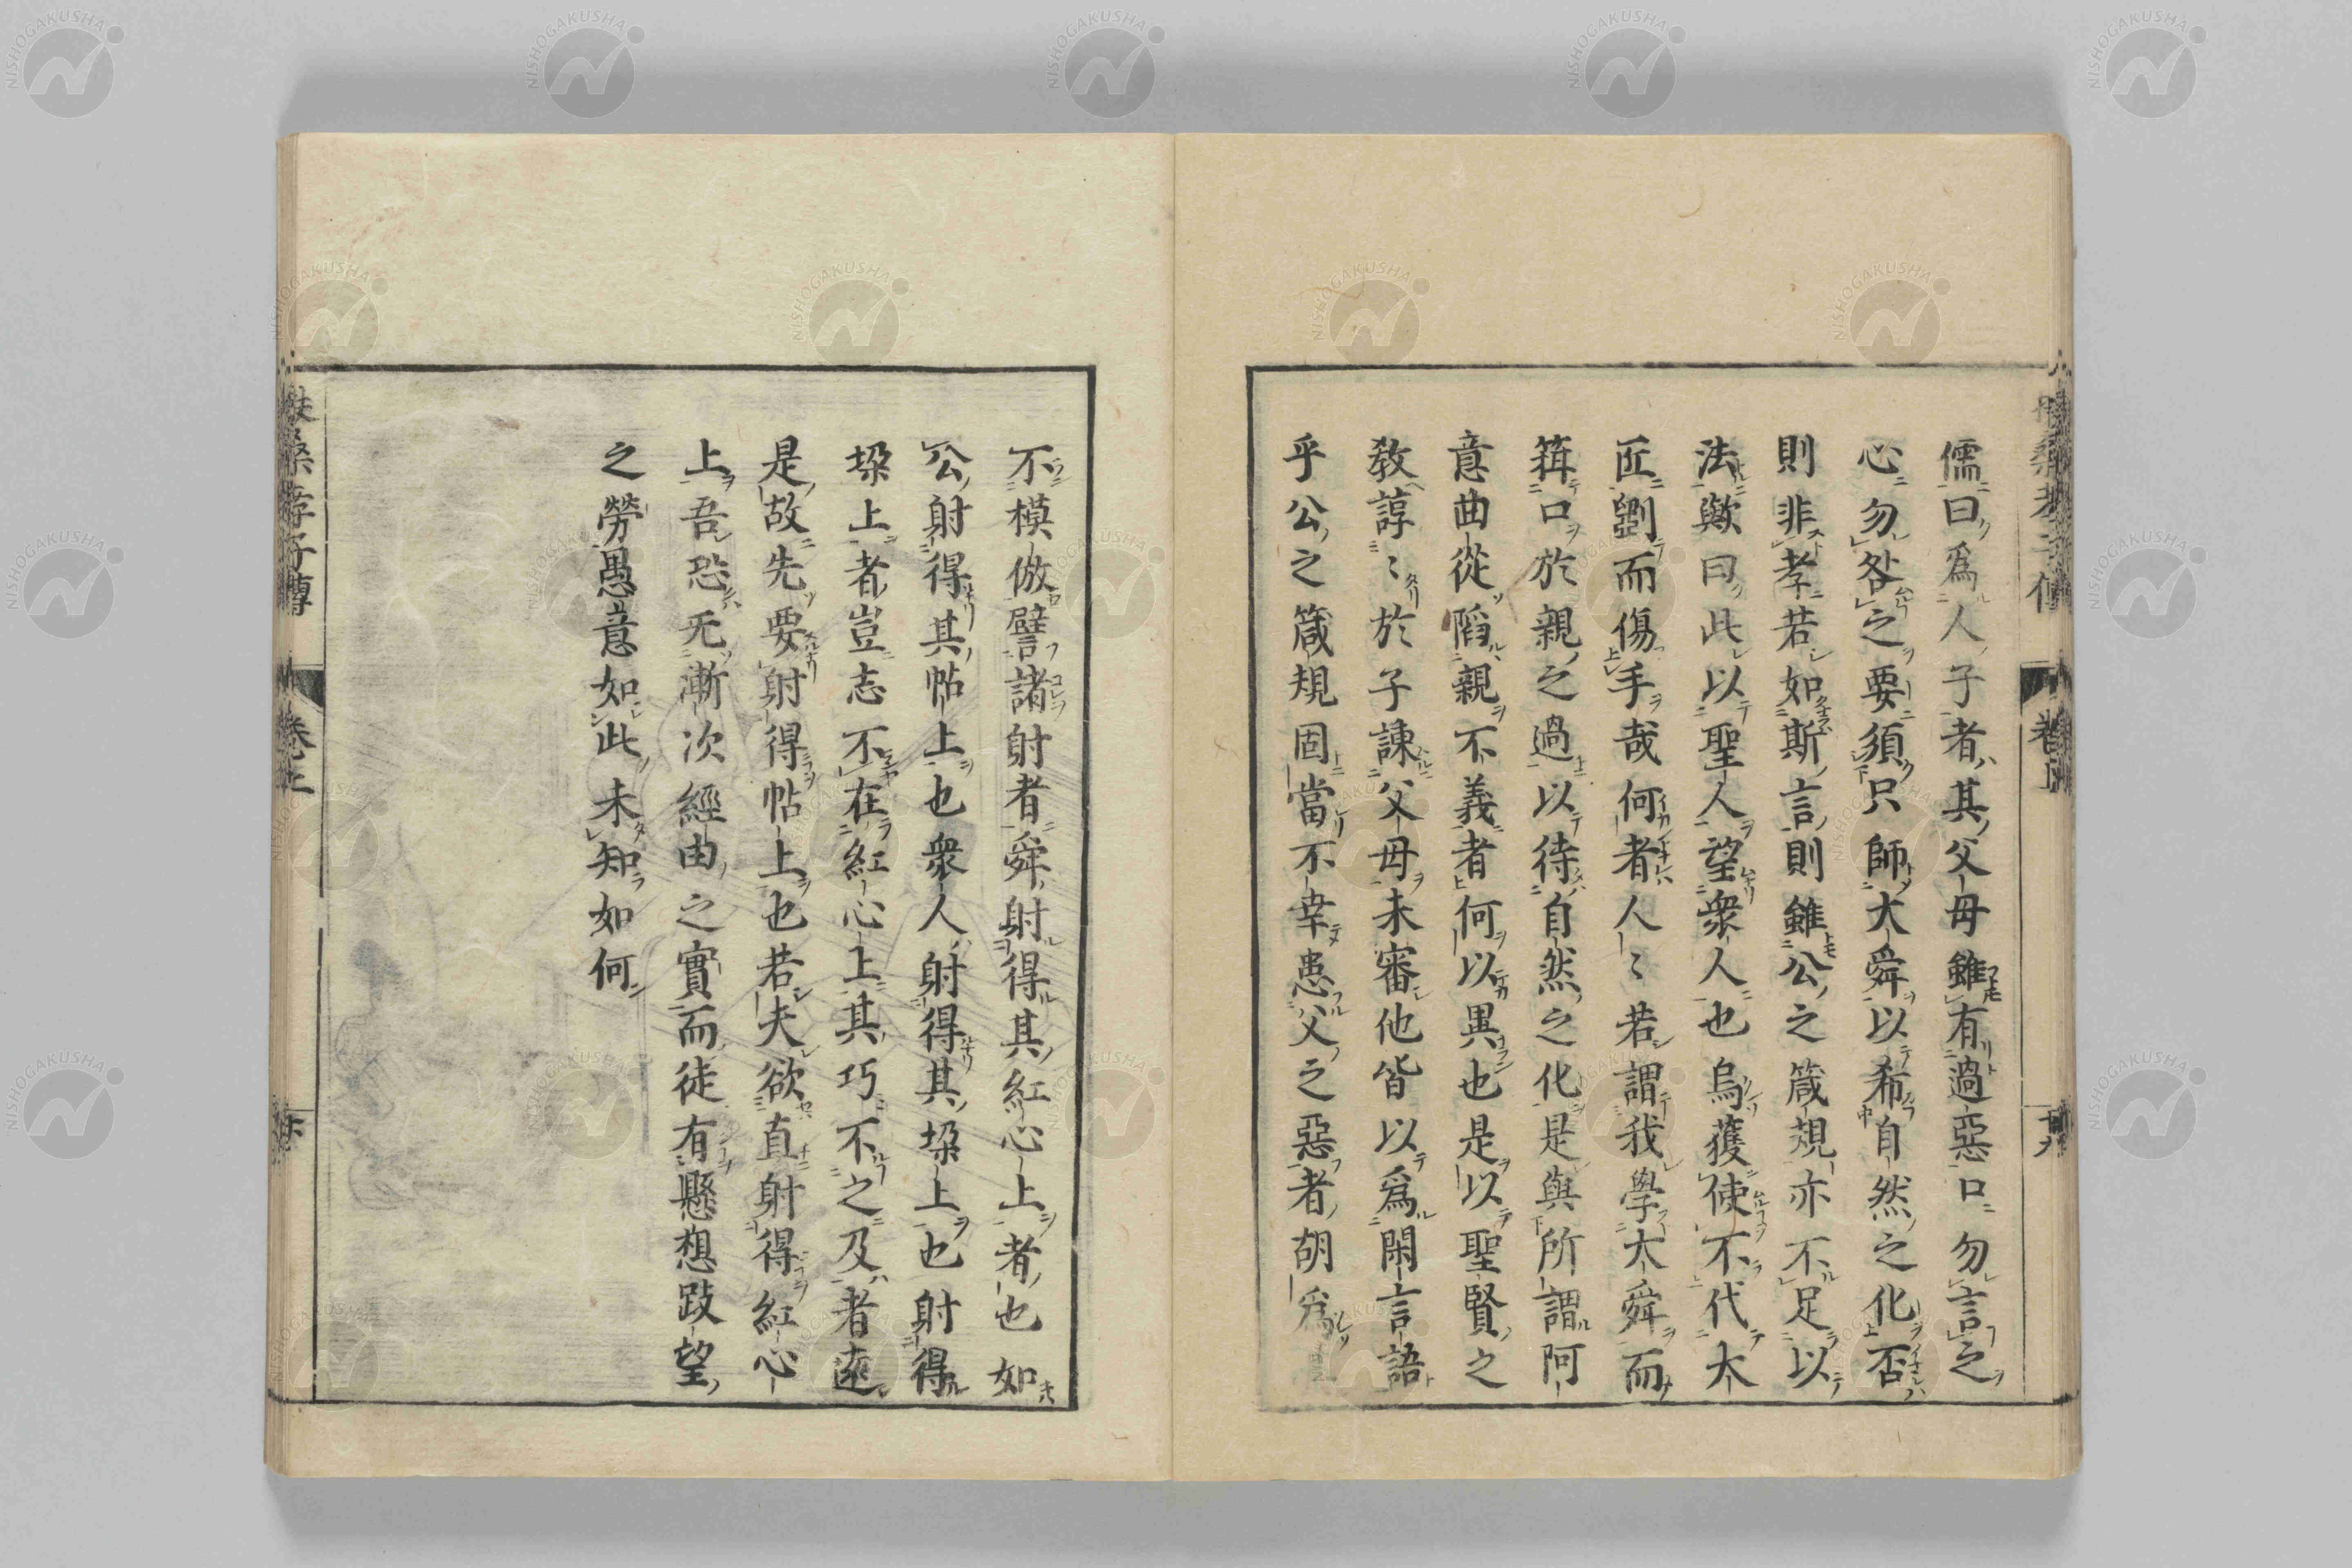 儒曰爲人子者其父母雖有過惡口勿言之
心勿咎之要須只師大舜以希自然之化否
則非孝若如斯言則雖公之箴規亦不足以
法歟曰此以聖人望衆人也烏獲使不代大
匠劉而傷手哉何者人〻若謂我學大舜而
箝口於親之過以待自然之化是與所謂阿
意曲從陷親不義者何以異也是以聖賢之
教諄〻於子諫父母未審他皆以爲閑言語
乎公之箴規固當不幸患父之惡者胡爲
不模倣譬諸射者舜射得其紅心上者也如
公射得其帖上也衆人射得其垜上也射得
垜上者豈志不在紅心上其巧不之及者遠
是故先要射得帖上也若夫欲直射得紅心
上吾恐无漸次經由之實而徒有懸想跂望
之勞愚意如此未知如何
孝子傳
卷上
NISHOGAKUSHA